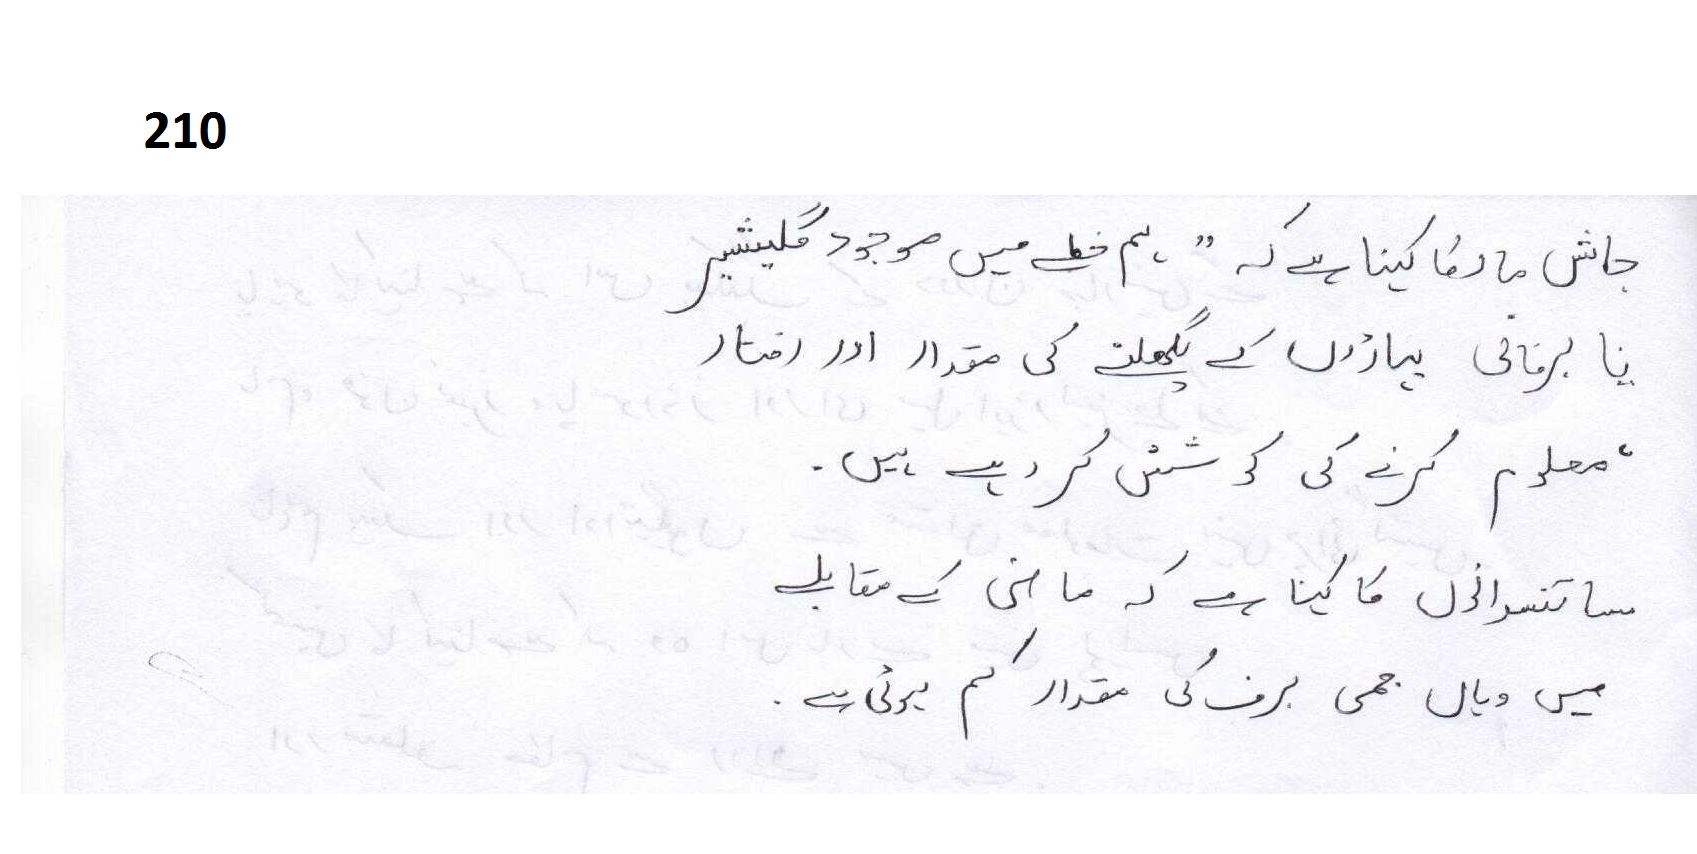 210
جانش مادکا کہنا ہے کہ ” ہم خطے میں موجود گلیشیر
یا برفانی پہاڑوں کے پگھلنے کی مقدار اور رفتار
معلوم کرنے کی کوشش کر رہے ہیں۔
سائنسدانوں کا کہنا ہے کہ ماضی کے مقابلے
میں وہاں جمی برف کی مقدار کم ہوئی ہے۔